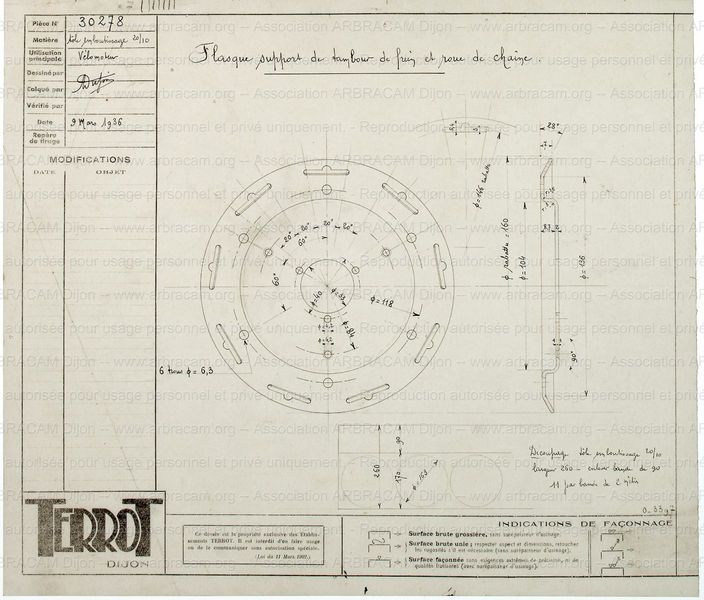 Pièce N° 30278
Matière tôle emboutissage 20/10
Utilisation principale Vélomoteur
Dessiné par
Calqué par
Vérifié par
Date 9 Mars 1936
Repère de tirage
MODIFICATIONS
DATE OBJET
Flasque support de tambour de frein et roue de chaine.
28°
ϕ rabattu = 160
ϕ = 104
ϕ = 136
20° 20° 20° 20°
60°
60°
ϕ = 40
ϕ = 118
ϕ = 84
90°
6 trous ϕ = 6,3
90
260
170
Decoupage tôle emboutissage 20/10
largeur 260 - enlever bande de 90
11 par bande de 2 mètres
TERROT
DIJON
Ce dessin est la propriété exclusive des Etablis-
sements TERROT. Il est interdit d'en faire usage
ou de le communiquer sans autorisation spéciale.
(Loi du 11 Mars 1902.)
INDICATIONS DE FAÇONNAGE
Surface brute grossière, sans surépaisseur d'usinage.
Surface brute unie; respecter aspect et dimensions, retoucher
les rugosités s'il est nécessaire (sans surépaisseur d'usinage).
Surface façonnée sans exigences extrêmes de précision, ni de
qualités flattantes (avec surépaisseur d'usinage).
Association ARBRACAM Dijon -- www.arbracam.org -- Association ARBRACAM Dijon
autorisée pour usage personnel et privé uniquement. - Reproduction autorisée pour usage personnel et privé